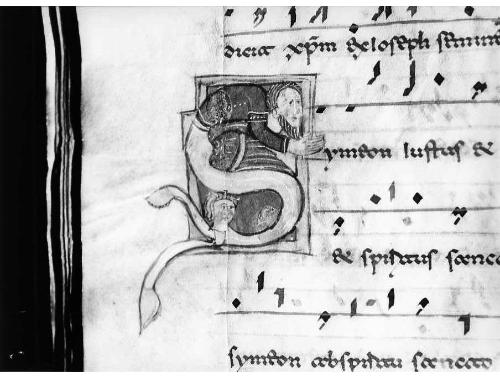 dicit xpm de ioseph semine
Symeon iustus de
de spiritus sancto
symeon abspiritu sancto